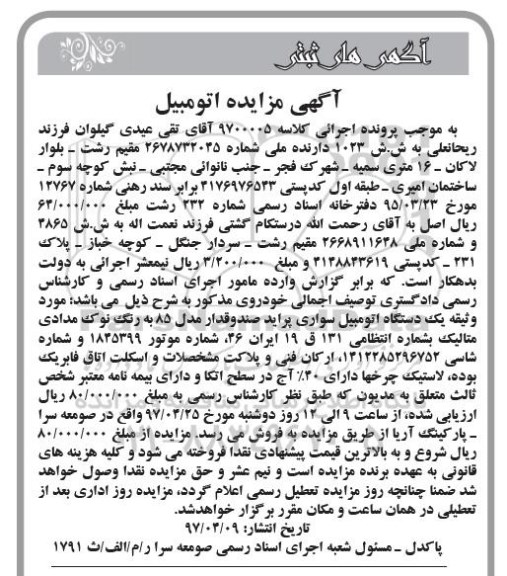 آگهی های ثبتی
آگهی مزایده اتومبیل
به موجب پرونده اجرائی کلاسه ۹۷۰۰۰۰۵ آقای تقی عیدی گیلوان فرزند
ریحانعلی به ش.ش ۱۰۲۳ دارنده ملی شماره ۲۶۷۸۷۳۲۰۴۵ مقیم رشت ـ بلوار
لاکان ـ ۱۶ متری سمیه ـ شهرک فجر ـ جنب نانوائی مجتبی ـ نبش کوچه سوم ـ
ساختمان امیری ـ طبقه اول کدپستی ۴۱۷۶۹۷۶۵۴۳ برابر سند رهنی شماره ۱۲۷۶۷
مورخ ۹۵/۰۳/۲۳ دفترخانه اسناد رسمی شماره ۲۳۲ رشت مبلغ ۶۴/۰۰۰/۰۰۰
ریال اصل به آقای رحمت الله درستکام گشتی فرزند نعمت اله به ش.ش ۳۸۶۵
و شماره ملی ۲۶۶۸۹۱۱۶۴۸ مقیم رشت ـ سردار جنگل ـ کوچه خباز ـ پلاک
۲۳۱ ـ کدپستی ۴۱۴۸۸۴۳۶۱۹ و مبلغ ۳/۲۰۰/۰۰۰ ریال نیمعشر اجرائی به دولت
بدهکار است. که برابر گزارش وارده مامور اجرای اسناد رسمی و کارشناس
رسمی دادگستری توصیف اجمالی خودروی مذکور به شرح ذیل می باشد: مورد
وثیقه یک دستگاه اتومبیل سواری پراید صندوقدار مدل ۸۵ به رنگ نوک مدادی
متالیک بشماره انتظامی ۱۳۱ ق ۱۹ ایران ۴۶، شماره موتور ۱۸۴۵۳۹۹ و شماره
شاسی ۱۴۱۲۲۸۵۲۹۶۷۵۲، ارکان فنی و پلاکت مشخصلات و اسکلت اتاق فابریک
بوده، لاستیک چرخها دارای ۴۰٪ آج در سطح اتکا و دارای بیمه نامه معتبر شخص
ثالث متعلق به مدیون که طبق نظر کارشناس رسمی به مبلغ ۸۰/۰۰۰/۰۰۰ ریال
ارزیابی شده، از ساعت ۹ الی ۱۲ روز دوشنبه مورخ ۹۷/۰۴/۲۵ واقع در صومعه سرا
ـ پارکینگ آریا از طریق مزایده به فروش می رسد. مزایده از مبلغ ۸۰/۰۰۰/۰۰۰
ریال شروع و به بالاترین قیمت پیشنهادی نقدا فروخته می شود و کلیه هزینه های
قانونی به عهده برنده مزایده است و نیم عشر و حق مزایده نقدا وصول خواهد
شد ضمنا چنانچه روز مزایده تعطیل رسمی اعلام گردد، مزایده روز اداری بعد از
تعطیلی در همان ساعت و مکان مقرر برگزار خواهدشد.
تاریخ انتشار: ۹۷/۰۴/۰۹
پاکدل ـ مسئول شعبه اجرای اسناد رسمی صومعه سرا ر/م/الف/ث ۱۷۹۱